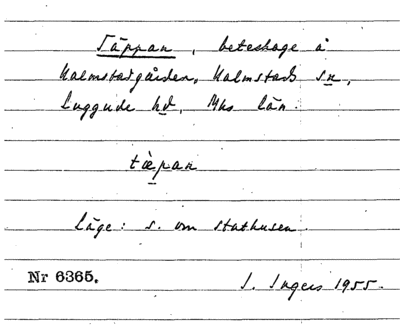 Täppan, beteshage å
Halmstadgården, Halmstads sn,
Luggude hd, Mhs län.
tæpan
Läge: s. om stathusen.
Nr 6365.
I. Ingers 1955.